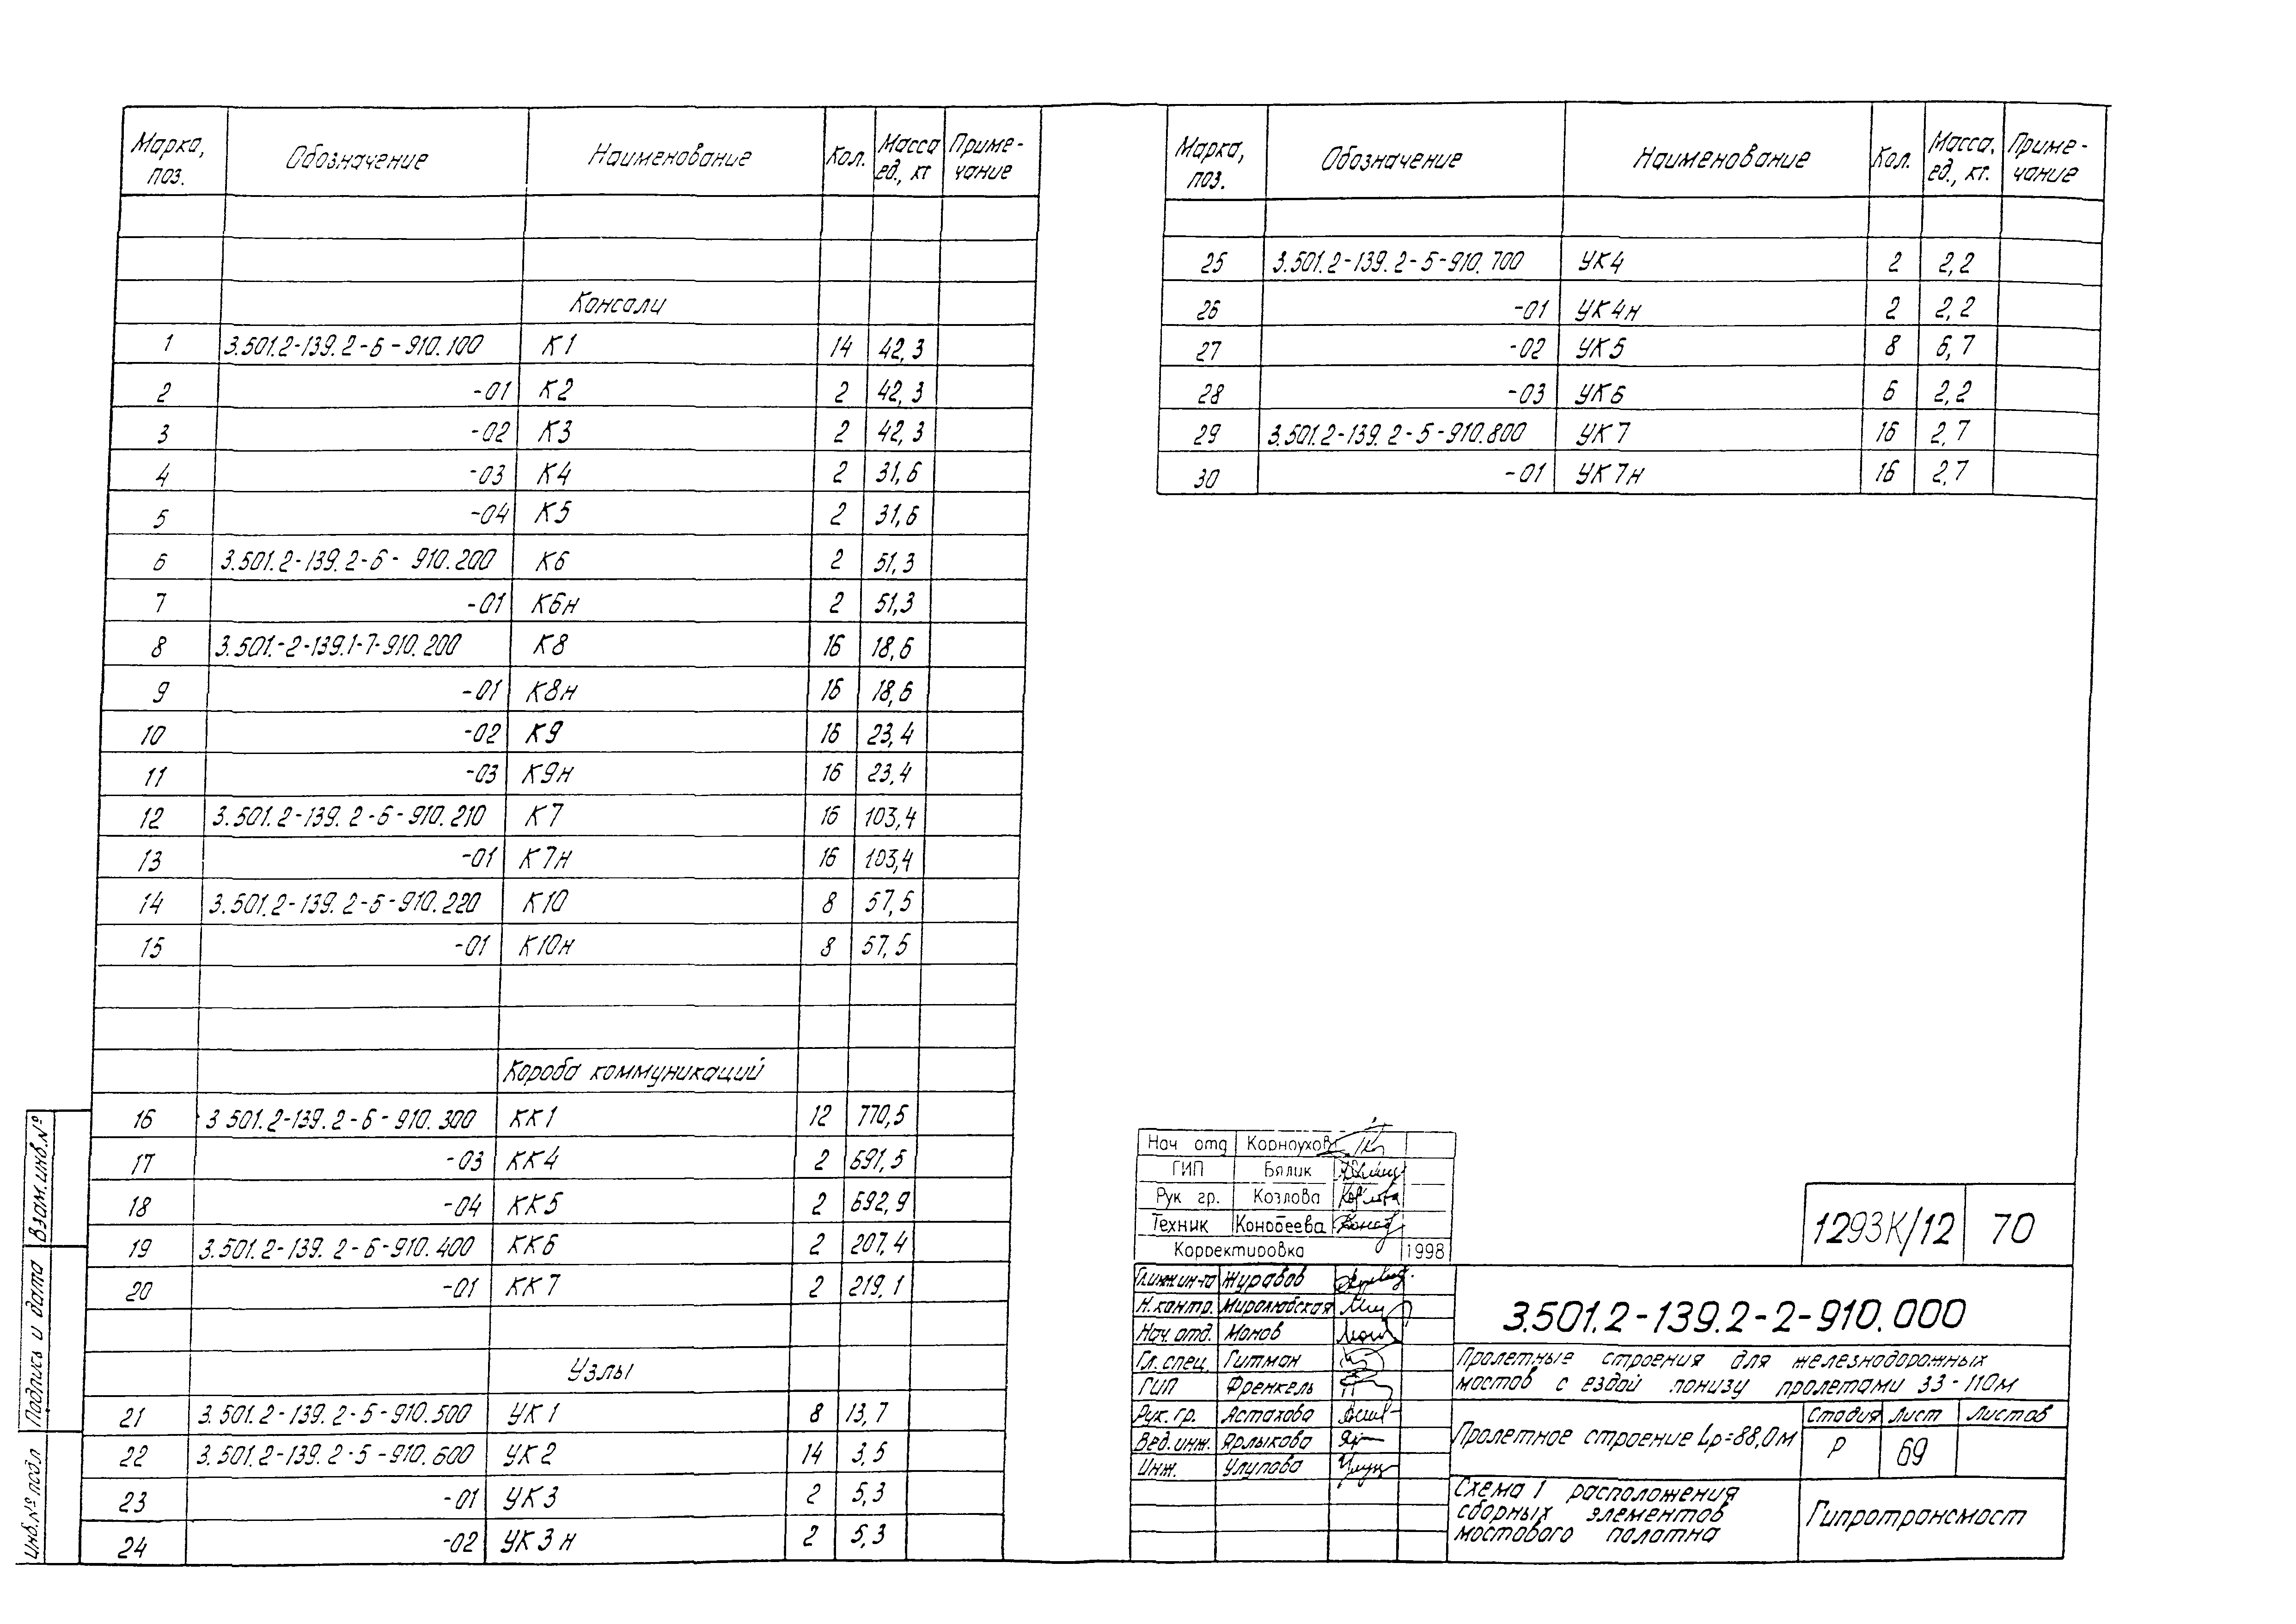 Марка, поз. Обозначение Наименование Кол. Масса ед., кг Приме-чание
Консоли
1 3.501.2-139.2-6-910.100 К1 14 42,3
2 -01 К2 2 42,3
3 -02 К3 2 42,3
4 -03 К4 2 31,6
5 -04 К5 2 31,6
6 3.501.2-139.2-6-910.200 К6 2 51,3
7 -01 К6н 2 51,3
8 3.501.-2-139.1-7-910.200 К8 16 18,6
9 -01 К8н 16 18,6
10 -02 К9 16 23,4
11 -03 К9н 16 23,4
12 3.501.2-139.2-6-910.210 К7 16 103,4
13 -01 К7н 16 103,4
14 3.501.2-139.2-6-910.220 К10 8 57,5
15 -01 К10н 8 57,5
Короба коммуникаций
16 3.501.2-139.2-6-910.300 КК1 12 770,5
17 -03 КК4 2 691,5
18 -04 КК5 2 692,9
19 3.501.2-139.2-6-910.400 КК6 2 207,4
20 -01 КК7 2 219,1
Узлы
21 3.501.2-139.2-5-910.500 УК1 8 13,7
22 3.501.2-139.2-5-910.600 УК2 14 3,5
23 -01 УК3 2 5,3
24 -02 УК3н 2 5,3
Марка, поз. Обозначение Наименование Кол. Масса, ед., кг. Приме-чание
25 3.501.2-139.2-5-910.700 УК4 2 2,2
26 -01 УК4н 2 2,2
27 -02 УК5 8 6,7
28 -03 УК6 6 2,2
29 3.501.2-139.2-5-910.800 УК7 16 2,7
30 -01 УК7н 16 2,7
Нач отд Корноухов
ГИП Бялик
Рук гр. Козлова
Техник Конобеева
Корректировка 1998
1293К/12 70
Гл.инж.ин-та Журавов
Н.контр. Миролюбская
Нач.отд. Монов
Гл.спец. Гитман
ГИП Френкель
Рук.гр. Астахова
Вед.инж. Ярлыкова
Инж. Улупова
3.501.2-139.2-2-910.000
Пролетные строения для железнодорожных
мостов с ездой понизу пролетами 33-110м
Пролетное строение Lр=88,0м
Стадия Лист Листов
Р 69
Схема 1 расположения
сборных элементов
мостового полотна
Гипротрансмост
Взам.инв.№
Подпись и дата
Инв.№ подл